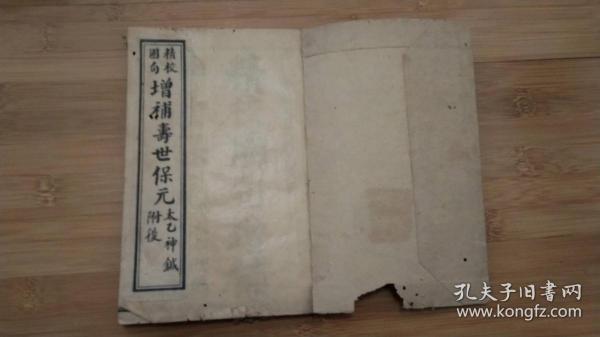 精校
圈句
增補壽世保元
太乙神鍼
附後
孔夫子旧书网
www.kongfz.com